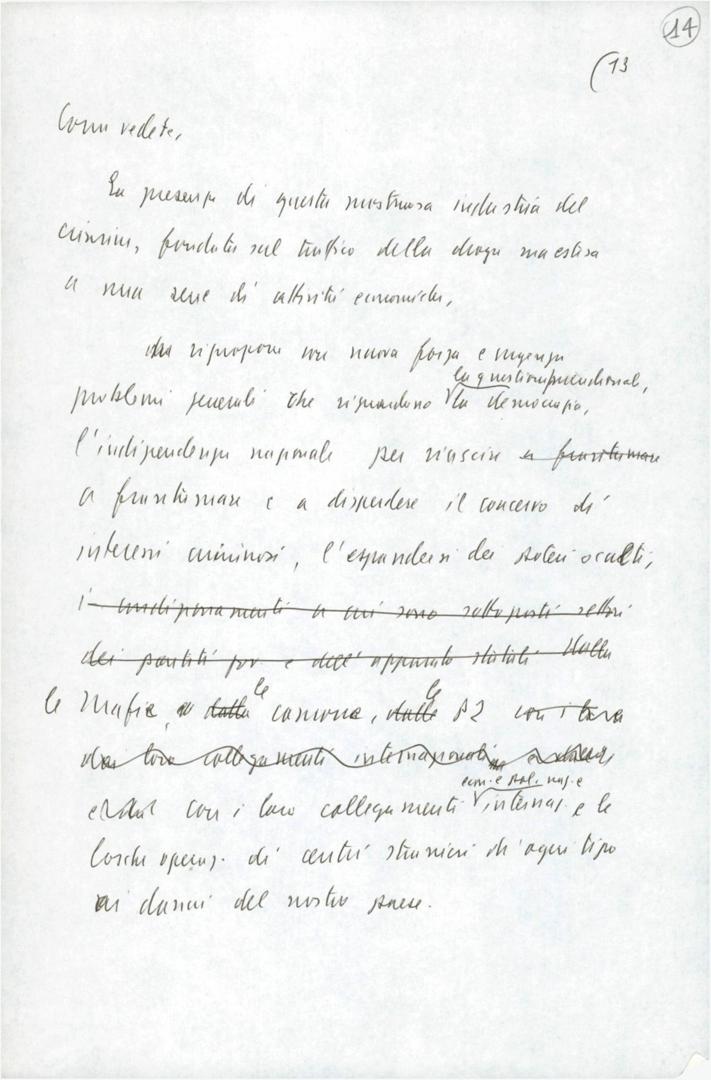 14
(13
Come vedete,
La presenza di questa mostruosa industria del
crimine, fondata sul traffico della droga ma estesa
a una serie di attività economiche,
ripropone con nuova forza e urgenza
la question meridional,
problemi generali che riguardono la democrazia,
l'indipendenza nazionale per riuscire a frantumare
a frantumare e a disperdere il concorso di
interessi criminosi, l'espandersi dei poteri occulti,
i condizionamenti a cui sono sottoposti settori
dei partiti gov. e dell'apparato statale dalla
le le
le Mafie, dalla camorra, dalle P2 con i loro
dai loro collegamenti internazionali
econ. e pol. naz. e
con i loro collegamenti internaz. e le
losche operaz. di centri stranieri di ogni tipo
ai danni del nostro paese.